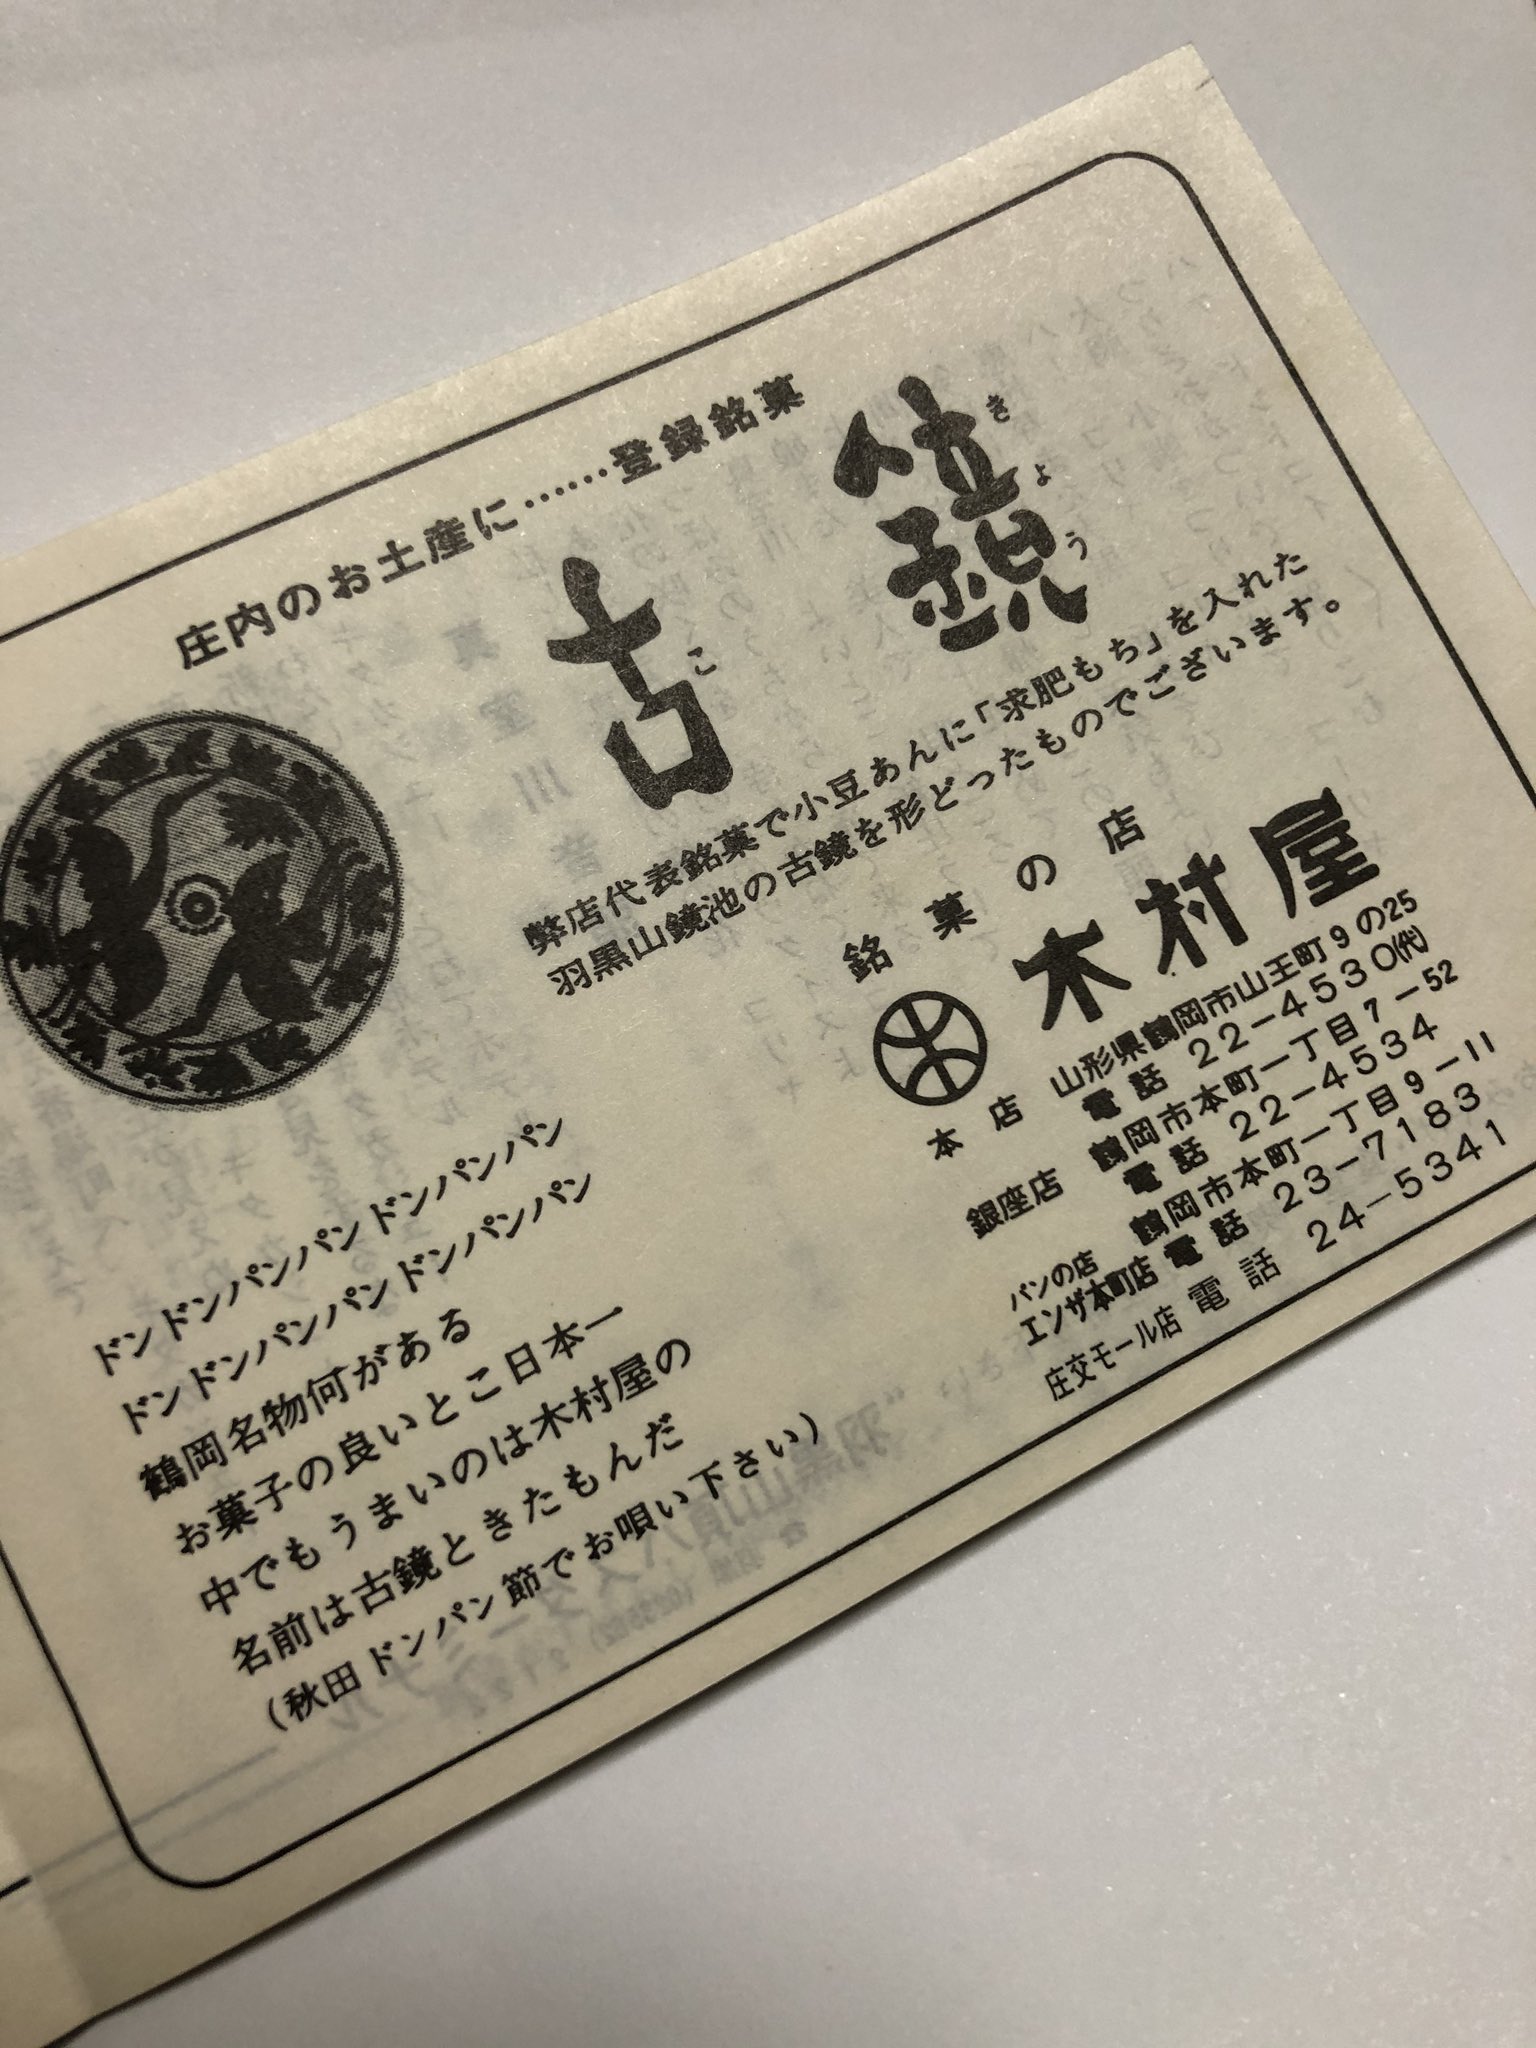 庄内のお土産に……登録銘菓
古鏡
こ きょう
弊店代表銘菓で小豆あんに「求肥もち」を入れた
羽黒山鏡池の古鏡を形どったものでございます。
銘菓の店
木 木村屋
本店 山形県鶴岡市山王町9の25
電話 22-4530(代)
銀座店 鶴岡市本町一丁目7-52
電話 22-4534
パンの店 鶴岡市本町一丁目9-11
エンザ本町店 電話 23-7183
庄交モール店 電話 24-5341
ドンドンパンパンドンパンパン
ドンドンパンパンドンパンパン
鶴岡名物何がある
お菓子の良いとこ日本一
中でもうまいのは木村屋の
名前は古鏡ときたもんだ
(秋田ドンパン節でお唄い下さい)